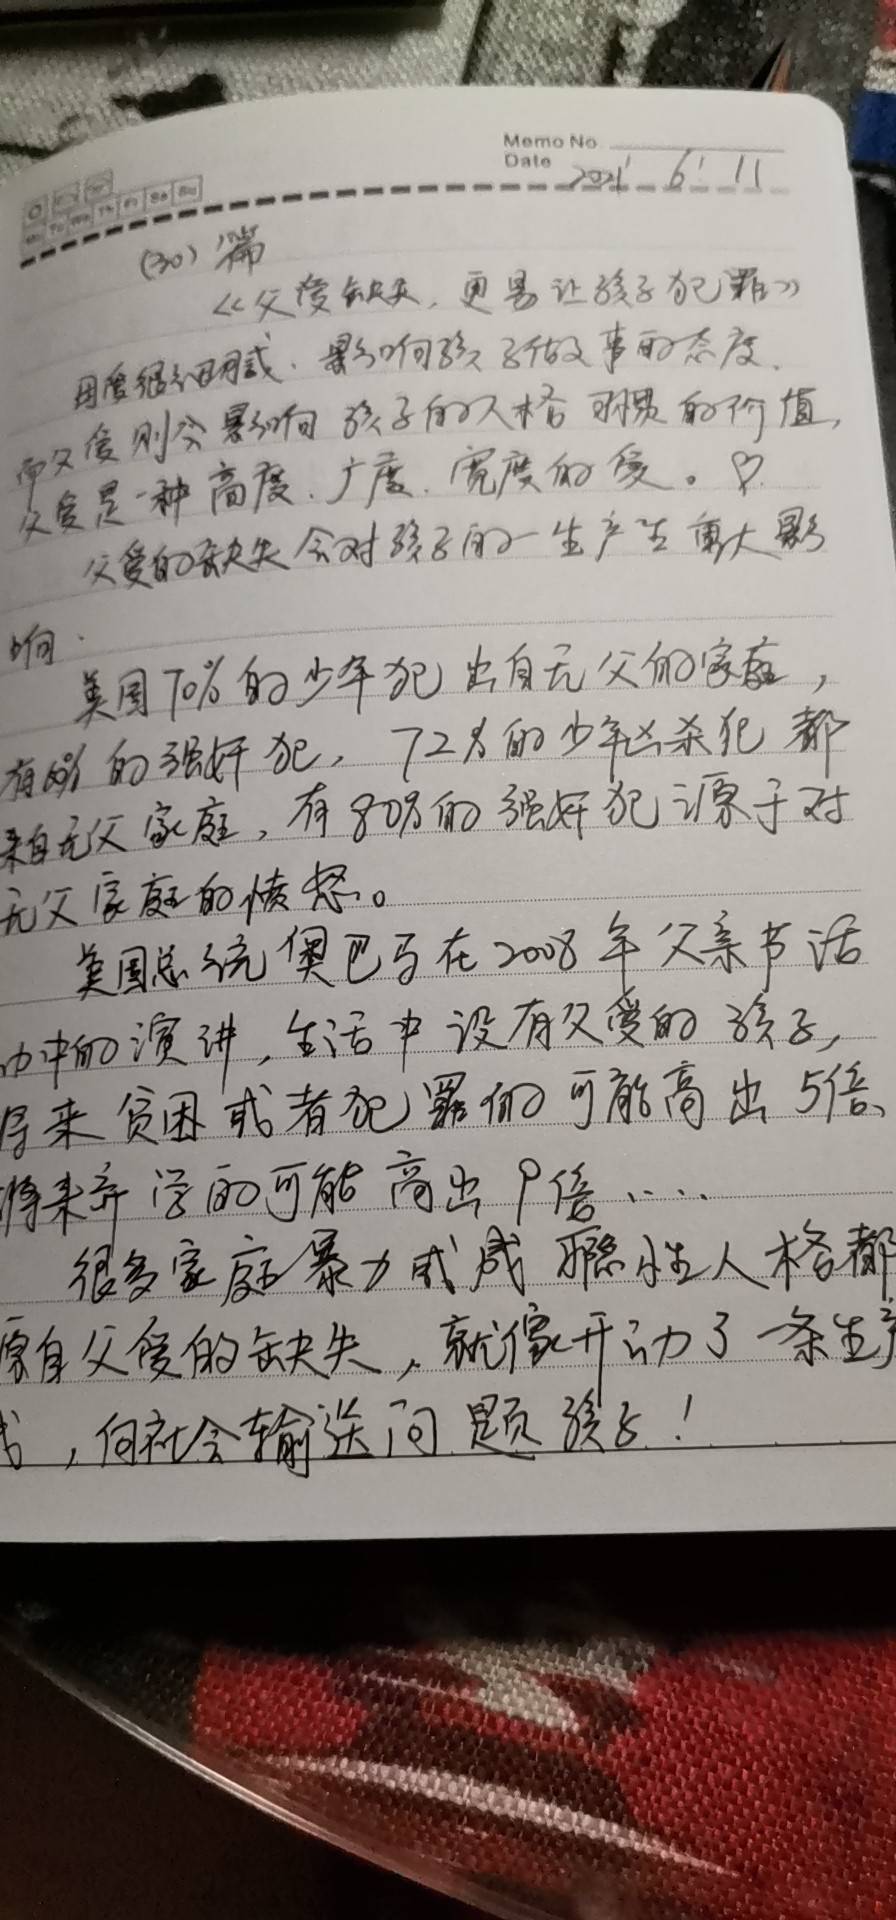 Memo No
Date 2021 6 11
Mo Tu We Th Fr Sa Su
(30) 篇
《父爱缺失，更易让孩子犯罪》
母爱很细腻、影响孩子做事的态度、
而父爱则会影响孩子的人格 的价值，
父爱是一种高度、广度、宽度的爱。♡
父爱的缺失会对孩子的一生产生重大影
响.
美国70%的少年犯出自无父的家庭，
有60%的强奸犯，72%的少年凶杀犯都
来自无父家庭，有80%的强奸犯源于对
无父家庭的愤怒。
美国总统奥巴马在2008年父亲节活
动中的演讲，生活中没有父爱的孩子，
将来贫困或者犯罪的可能高出5倍、
将来弃学的可能高出9倍....
很多家庭暴力或成瘾性人格都
源自父爱的缺失，就像开动了一条生产
，向社会输送问题孩子！